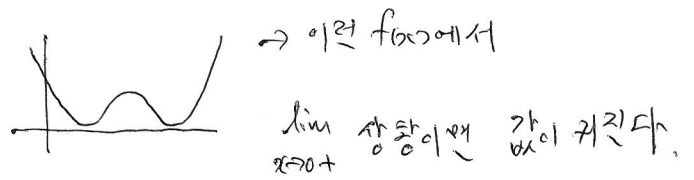 → 이런 f(x)에서
lim 상황이면 값이 커진다.
x→0+